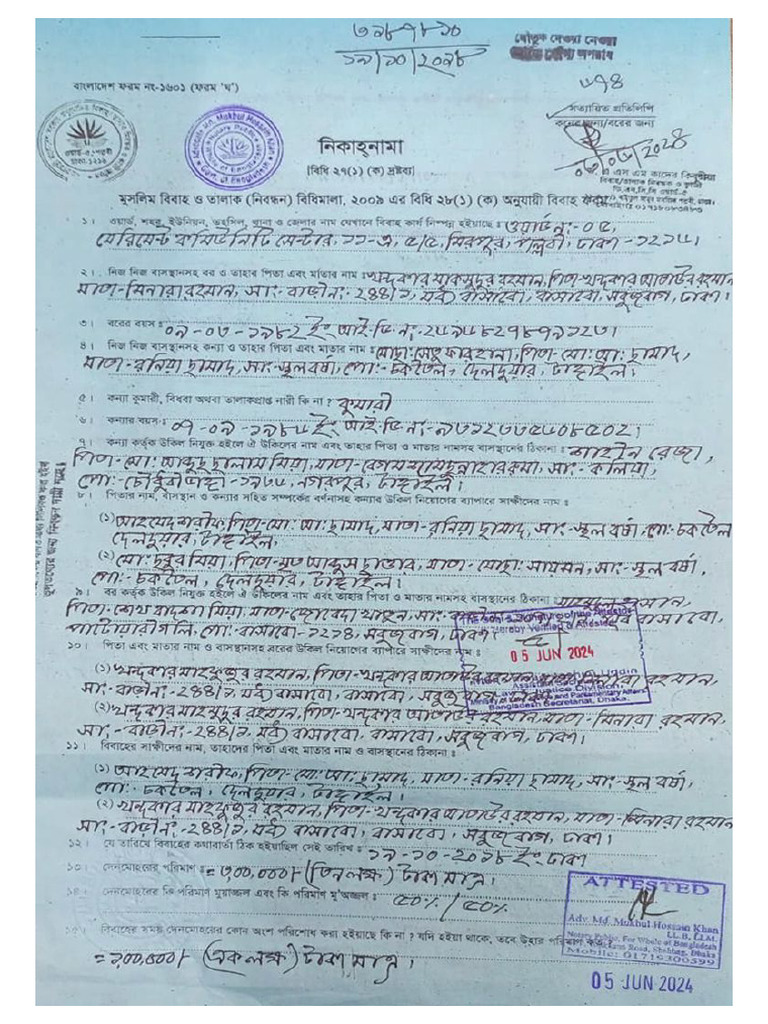 ৩৯৮৭৮৯০
১৯/১০/২০১৮
যৌতুক দেওয়া নেওয়া
অপরাধ
বাংলাদেশ ফরম নং-১৬০১ (ফরম 'ঘ')
৩৭৪
সত্যায়িত প্রতিলিপি
কনের জন্য/বরের জন্য
নিকাহ্‌নামা
[বিধি ২৭(১) (ক) দ্রষ্টব্য]
Advocate Md. Mukbul Hossain Khan
Notary Public
Govt. of Bangladesh
মুসলিম বিবাহ ও তালাক (নিবন্ধন) বিধিমালা, ২০০৯ এর বিধি ২৮(১) (ক) অনুযায়ী বিবাহ
১। ওয়ার্ড, শহর, ইউনিয়ন, তহসিল, থানা ও জেলার নাম যেখানে বিবাহ কার্য নিষ্পন্ন হইয়াছে : ওয়ার্ড নং- ০৫,
কমিউনিটি সেন্টার, ১১-এ, ৫/৫, মিরপুর, পল্লবী, ঢাকা -১২১৬।
২। নিজ নিজ বাসস্থানসহ বর ও তাহার পিতা এবং মাতার নাম : খন্দকার মাকসুদুর রহমান, পিতা-খন্দকার আতাউর রহমান
মাতা-মিনারা রহমান, সাং- বাড়ী নং- ২৪৪/১, মধ্য বাসাবো, বাসাবো, সবুজবাগ, ঢাকা।
৩। বরের বয়স : ০৯-০৩-১৯৮২ ইং
৪। নিজ নিজ বাসস্থানসহ কন্যা ও তাহার পিতা এবং মাতার নাম : মোছাঃ সেতু ফারহানা, পিতা- মোঃ আঃ ছামাদ,
মাতা- রনিয়া ছামাদ, সাং-স্থুলবর্ষা, পোঃ- চকতৈল, দেলদুয়ার, টাঙ্গাইল।
৫। কন্যা কুমারী, বিধবা অথবা তালাকপ্রাপ্ত নারী কি না? কুমারী
৬। কন্যার বয়স :
৭। কন্যা কর্তৃক উকিল নিযুক্ত হইলে ঐ উকিলের নাম এবং তাহার পিতা ও মাতার নামসহ বাসস্থানের ঠিকানা : শাহীন রেজা,
পিতা- মোঃ আব্দুছ ছালাম মিয়া, সাং- কলিয়া,
নাগরপুর, টাঙ্গাইল।
৮। পিতার নাম, বাসস্থান ও কন্যার সহিত সম্পর্কের বর্ণনাসহ কন্যার উকিল নিয়োগের ব্যাপারে সাক্ষীদের নাম :
(১) আহমেদ শরীফ, পিতা- মোঃ আঃ ছামাদ, মাতা- রনিয়া ছামাদ, সাং- স্থুল বর্ষা, পোঃ- চকতৈল
দেলদুয়ার, টাঙ্গাইল,
(২) মোঃ মিয়া, পিতা-মৃত আব্দুস ছাত্তার, মাতা- মোছাঃ সাং- স্থুল বর্ষা,
পোঃ- চকতৈল, দেলদুয়ার, টাঙ্গাইল।
৯। বর কর্তৃক উকিল নিযুক্ত হইলে ঐ উকিলের নাম এবং তাহার পিতা ও মাতার নামসহ বাসস্থানের ঠিকানা
পিতা-শেখ বাদশা মিয়া, বাসাবো,
পাটোয়ারী গলি, পোঃ- বাসাবো-১২১৪, সবুজবাগ, ঢাকা।
05 JUN 2024
১০। পিতা এবং মাতার নাম ও বাসস্থানসহ বরের উকিল নিয়োগের ব্যাপারে সাক্ষীদের নাম :
(১) খন্দকার মাহফুজুর রহমান, পিতা-খন্দকার আতাউর রহমান, রহমান,
সাং- বাড়ী নং- ২৪৪/১, মধ্য বাসাবো, বাসাবো, সবুজবাগ
Ministry of Law, and Parliamentary Affairs
Bangladesh Secretariat, Dhaka.
(২) খন্দকার মাহমুদুর রহমান, পিতা-খন্দকার আতাউর রহমান, মাতা- মিনারা রহমান,
সাং- বাড়ী নং- ২৪৪/১, মধ্য বাসাবো, বাসাবো, সবুজবাগ, ঢাকা।
১১। বিবাহের সাক্ষীদের নাম, তাহাদের পিতা এবং মাতার নাম ও বাসস্থানের ঠিকানা :
(১) আহমেদ শরীফ, পিতা- মোঃ আঃ ছামাদ, মাতা- রনিয়া ছামাদ, সাং- স্থুল বর্ষা,
পোঃ- চকতৈল, দেলদুয়ার, টাঙ্গাইল।
(২) খন্দকার মাহফুজুর রহমান, পিতা-খন্দকার আতাউর রহমান, মাতা- মিনারা রহমান
সাং- বাড়ী নং- ২৪৪/১, মধ্য বাসাবো, বাসাবো, সবুজবাগ, ঢাকা।
১২। যে তারিখে বিবাহের কথাবার্তা ঠিক হইয়াছিল সেই তারিখ : ১৯-১০-২০১৮ ইং, ঢাকা
১৩। দেনমোহরের পরিমাণ : = ৩,০০,০০০/- (তিন লক্ষ) টাকা মাত্র।
১৪। দেনমোহরের কি পরিমাণ মুয়াজ্জল এবং কি পরিমাণ মু'অজ্জল : ৫০% / ৫০%
১৫। বিবাহের সময় দেনমোহরের কোন অংশ পরিশোধ করা হইয়াছে কি না? যদি হইয়া থাকে, তবে উহার পরিমাণ কত?
= ১,০০,০০০/- (এক লক্ষ) টাকা মাত্র।
ATTESTED
Adv. Md. Mukbul Hossain Khan
LL.B, LL.M.
Notary Public, For Whole of Bangladesh
Road, Shahbag, Dhaka
Mobile: 01715300599
05 JUN 2024